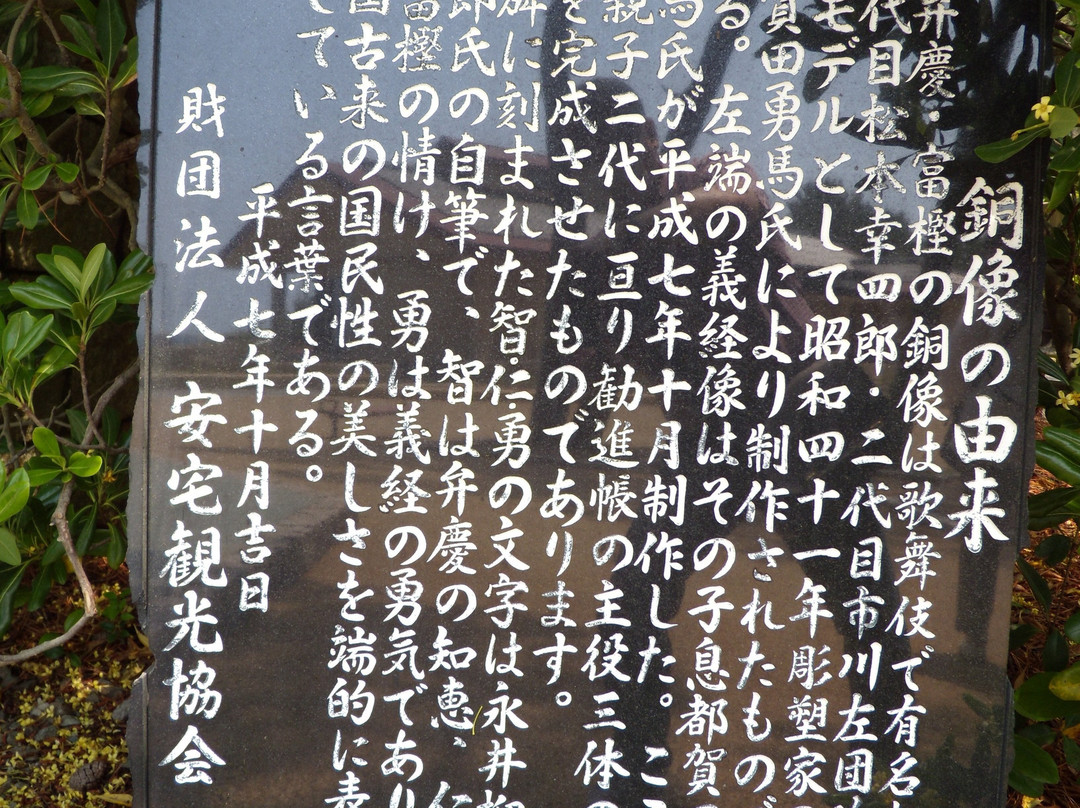 銅像の由来
弁慶・富樫の銅像は歌舞伎で有名
代目松本幸四郎・二代目市川左団
モデルとして昭和四十一年彫塑家
賀田勇馬氏により制作されたもので
る。左端の義経像はその子息都賀
馬氏が平成七年十月制作した。こ
親子二代に亘り勧進帳の主役三体の
を完成させたものであります。
碑に刻まれた智・仁勇の文字は永井柳
郎氏の自筆で、智は弁慶の知恵、仁
富樫の情け、勇は義経の勇気であり
国古来の国民性の美しさを端的に表
している言葉である。
平成七年十月吉日
財団法人 安宅観光協会